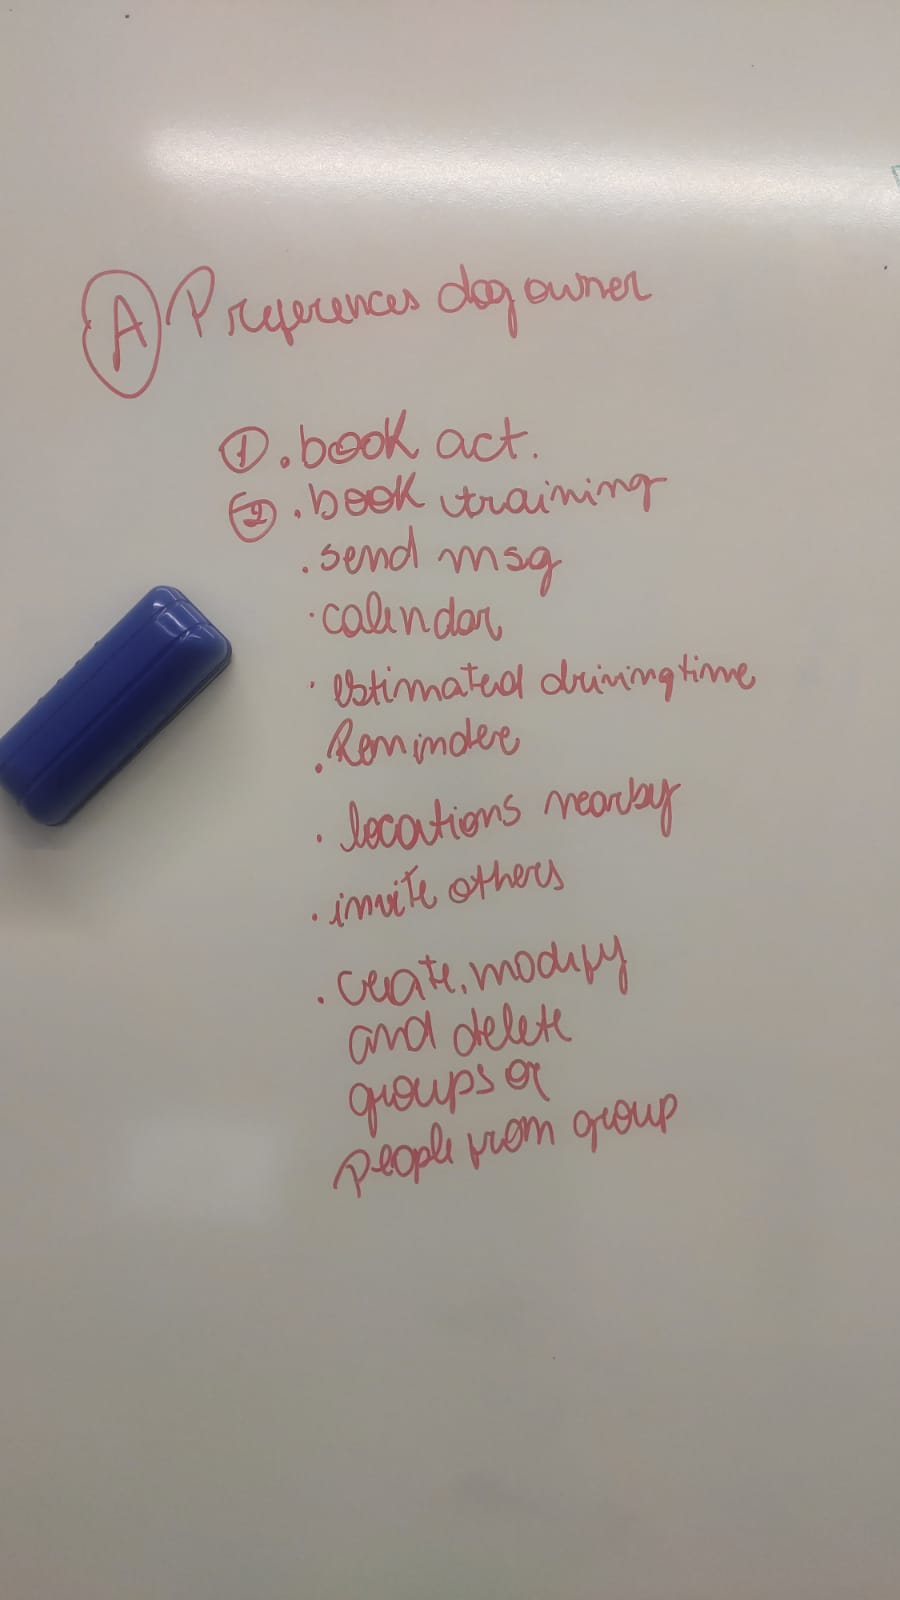 A Preferences dog owner
1 . book act.
2 . book training
. send msg
. calendar
. estimated driving time
. Reminder
. locations nearby
. invite others
. create, modify
and delete
groups or
people from group